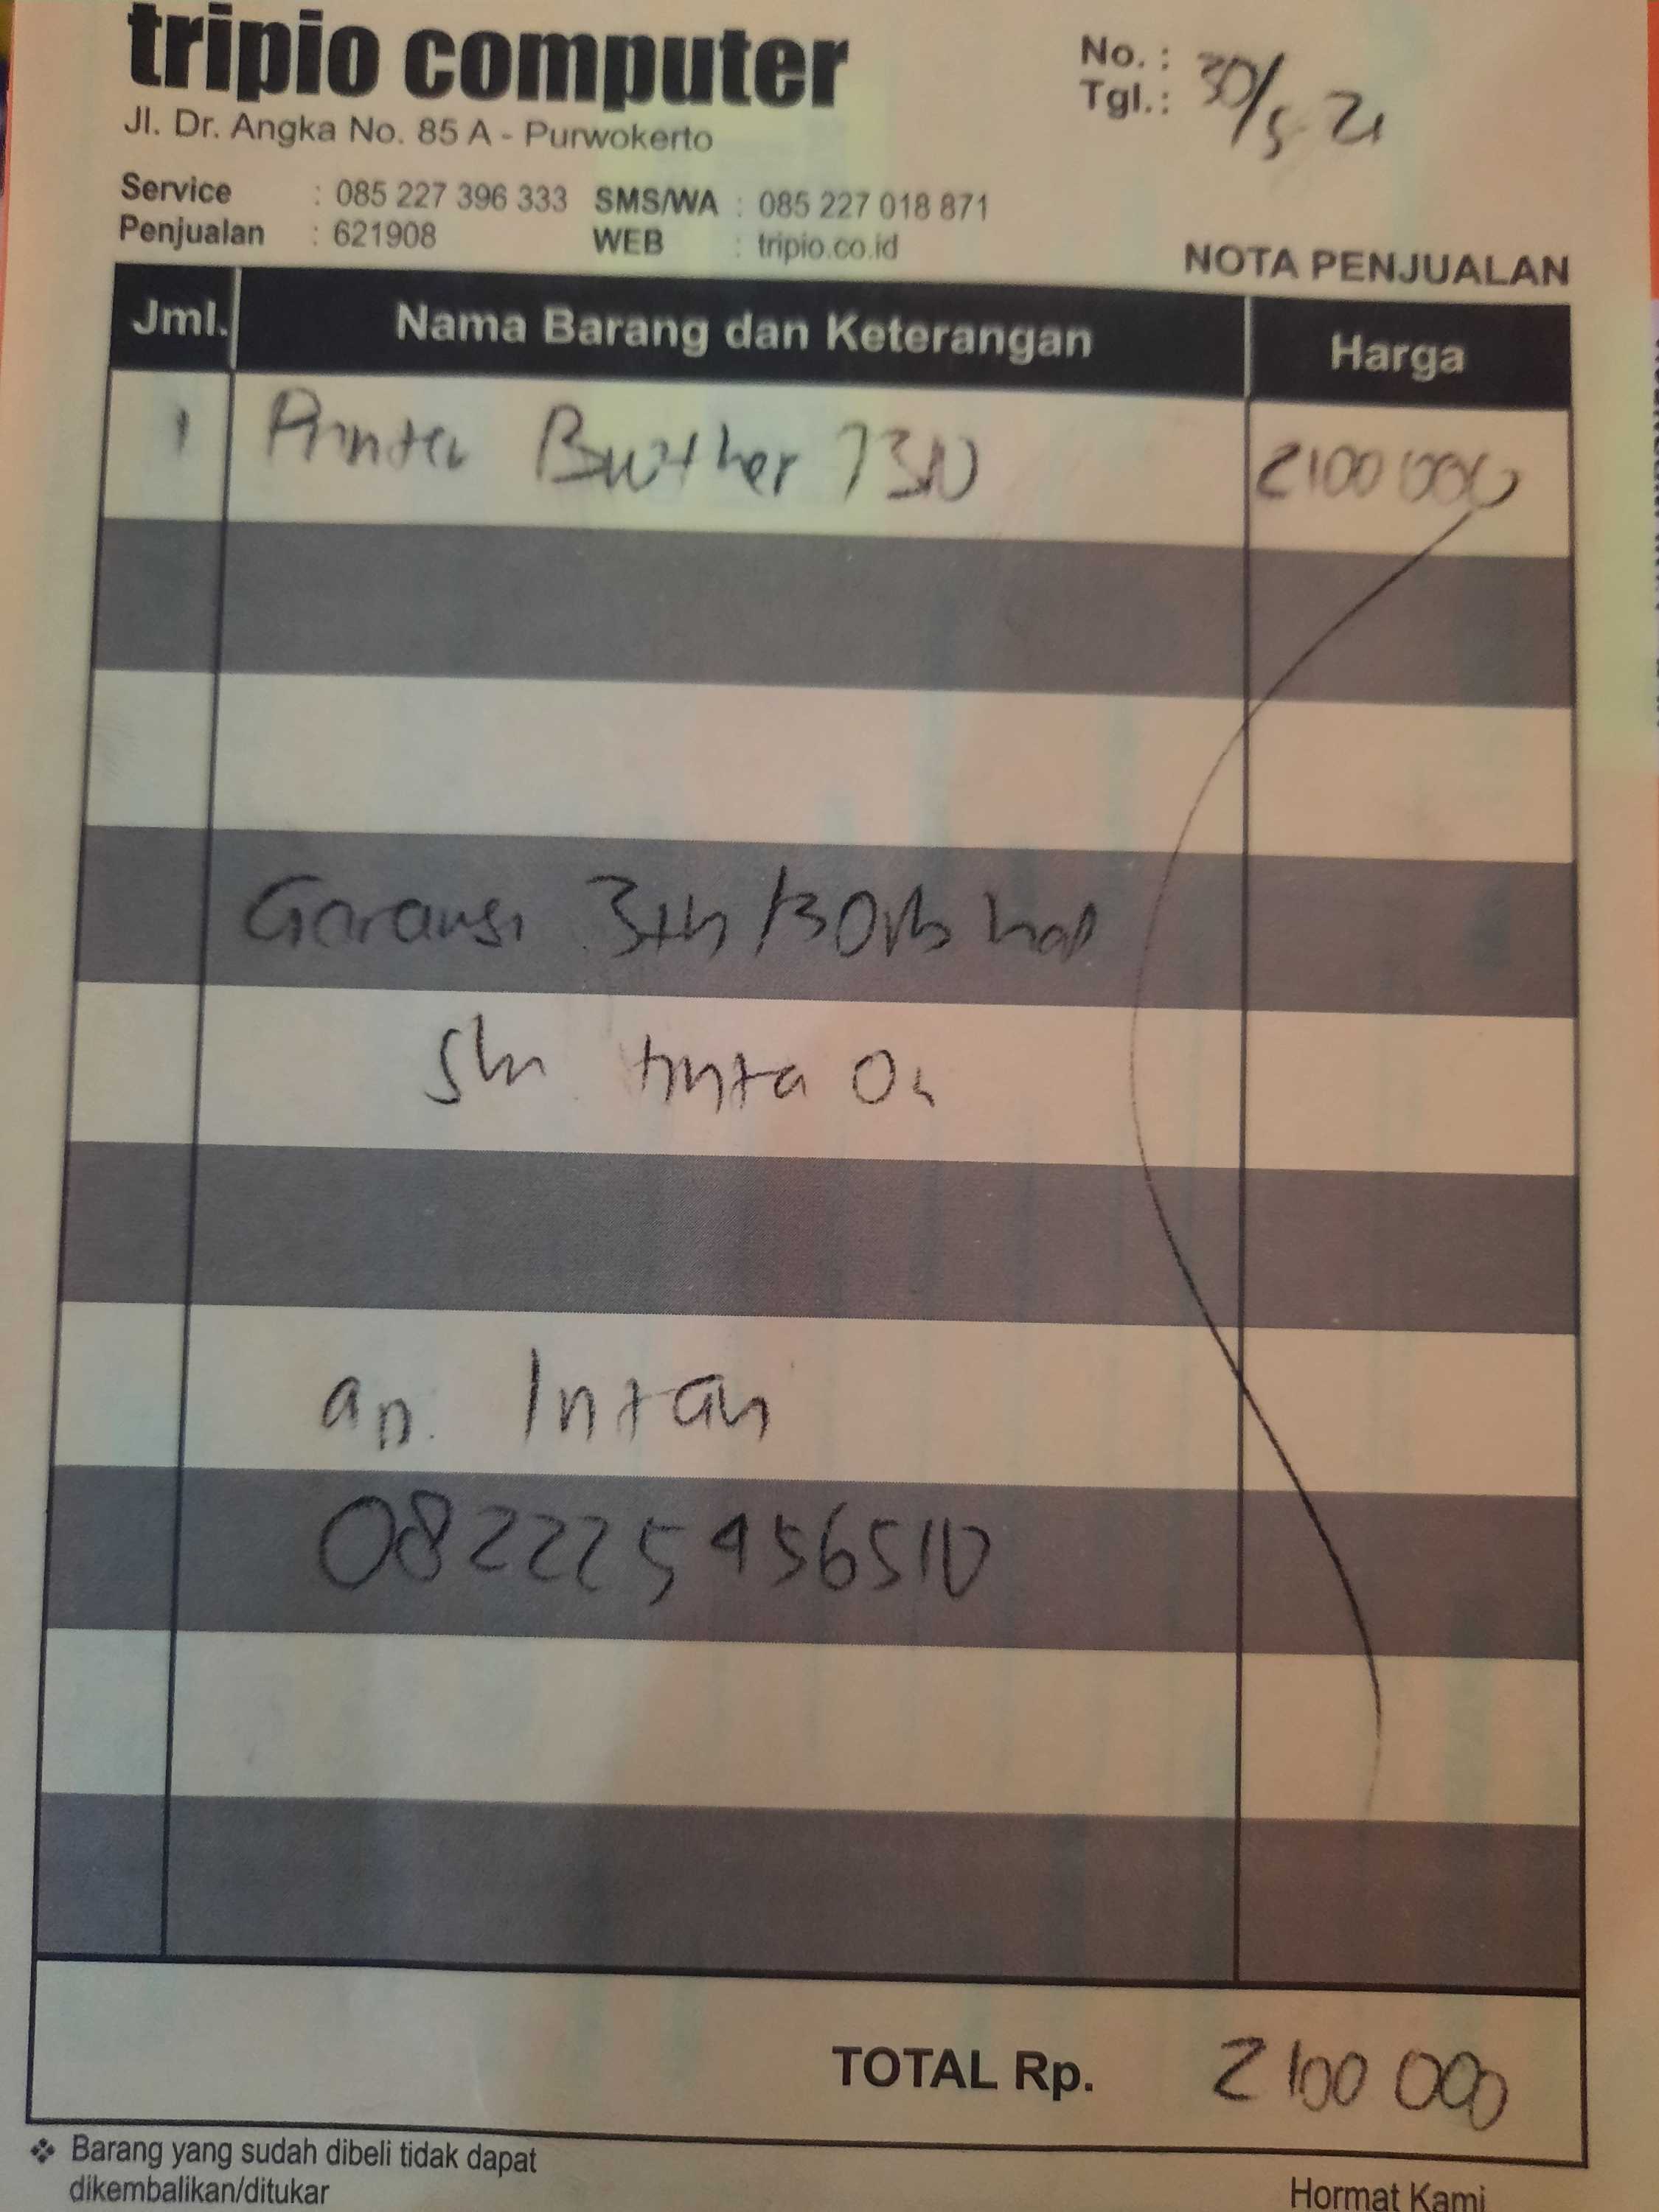 tripio computer
Jl. Dr. Angka No. 85 A - Purwokerto
No. :
Tgl. : 30/5 21
Service : 085 227 396 333 SMS/WA : 085 227 018 871
Penjualan : 621908 WEB : tripio.co.id
NOTA PENJUALAN
Jml. Nama Barang dan Keterangan Harga
1 Printer Brother 7310 2100 000
Garansi 3th/30rb hal
tinta
an. Intan
082225956510
TOTAL Rp. 2100 000
❖ Barang yang sudah dibeli tidak dapat
dikembalikan/ditukar
Hormat Kami